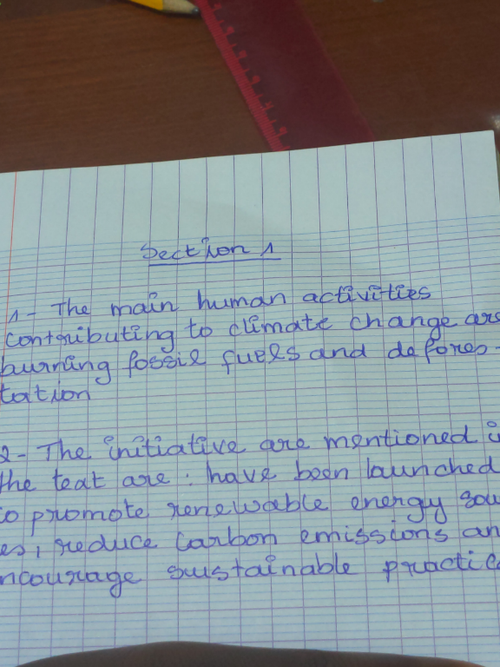 Section 1
1- The main human activities
contributing to climate change are
burning fossil fuels and defores-
tation
2- The initiative are mentioned i
the teat are : have been launched
to promote renewable energy sou
es, reduce carbon emissions an
ncourage sustainable practic